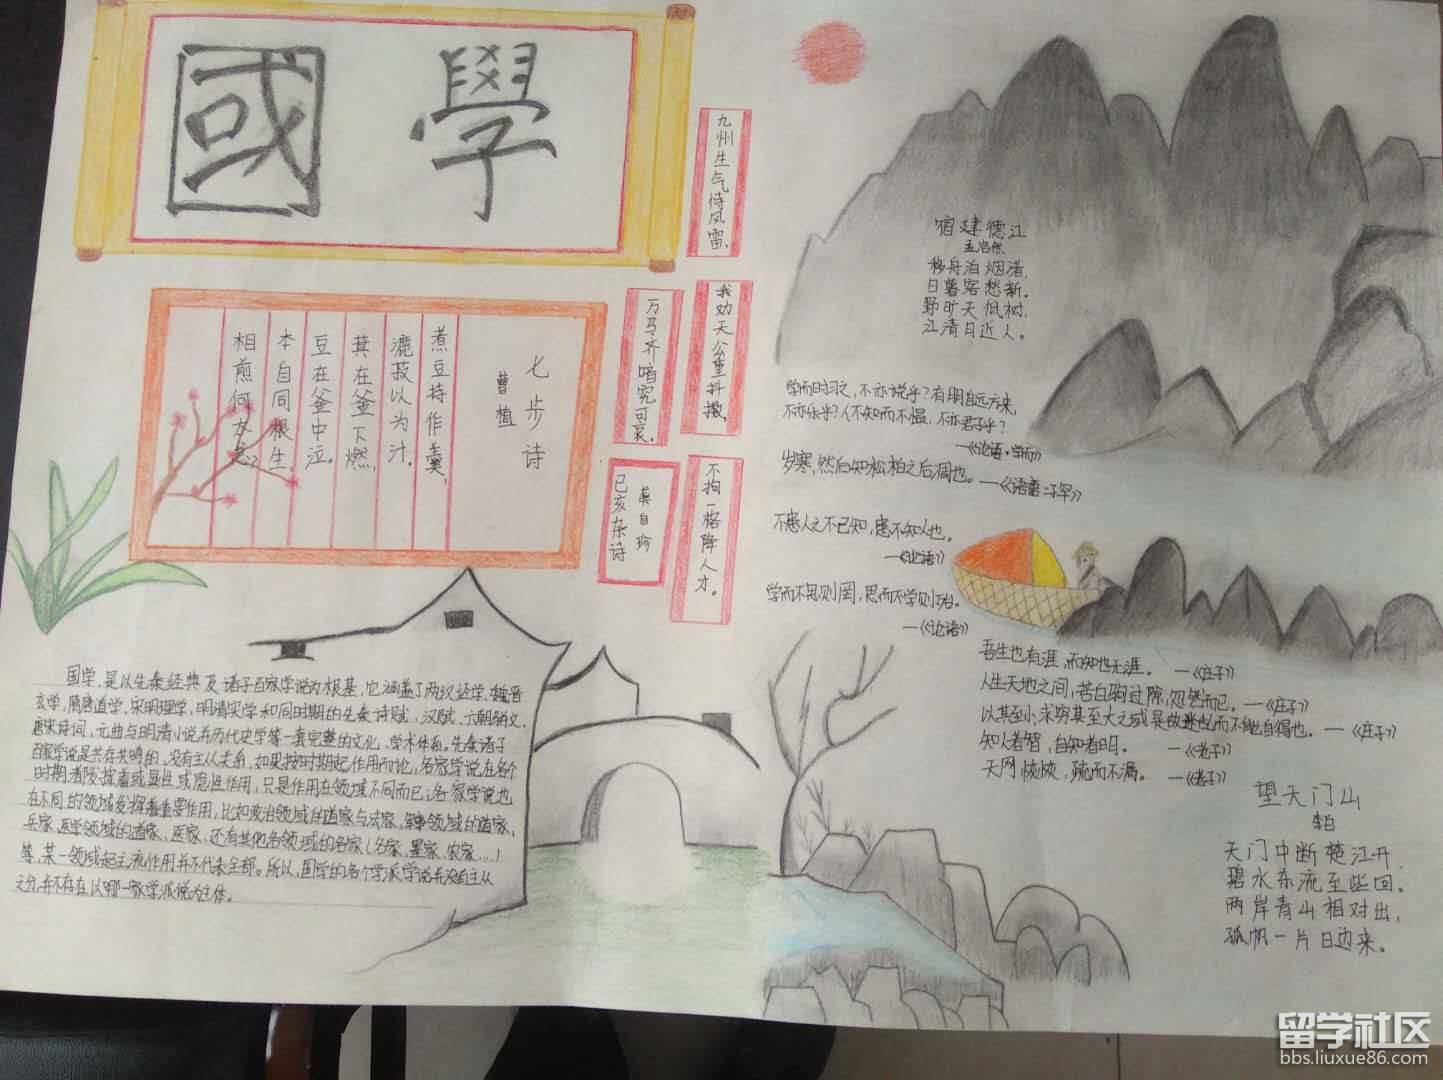 國學
九州生气恃风雷、
我劝天公重抖擞、
万马齐喑究可哀。
不拘一格降人才。
龚自珍
己亥杂诗
七步诗
曹植
煮豆持作羹，
漉菽以为汁．
萁在釜下燃，
豆在釜中泣。
本自同根生，
相煎何太急？
宿建德江
孟浩然
移舟泊烟渚，
日暮客愁新．
野旷天低树，
江清月近人。
学而时习之，不亦说乎？有朋自远方来，
不亦乐乎？人不知而不愠，不亦君子乎？
—《论语·学而》
岁寒，然后知松柏之后凋也。—《语·子罕》
不患人之不己知，患不知人也。
—《论语》
学而不思则罔，思而不学则殆。
—《论语》
吾生也有涯，而知也无涯。—《庄子》
人生天地之间，若白驹过隙，忽然而已。—《庄子》
以其至小，求穷其至大之域是故迷也而不能自得也。—《庄子》
知人者智，自知者明。—《老子》
天网恢恢，疏而不漏。—《老子》
望天门山
李白
天门中断楚江开，
碧水东流至些回。
两岸青山相对出，
孤帆一片日边来。
国学，是以先秦经典及诸子百家学说为根基，它涵盖了两汉经学、魏晋
玄学，隋唐道学、宋明理学，明清实学和同时期的先秦诗赋、汉赋、六朝骈文、
唐宋诗词、元曲与明清小说并历代史学等一套完整的文化、学术体系。先秦诸子
百家学说是共存共鸣的，没有主从关系，如果按时期起作用而论，各家学说在各个
时期都发挥着或显性或隐性作用，只是作用在领域不同而已；各家学说也
在不同的领域发挥着重要作用，比如政治领域的道家与法家，军事领域的道家、
兵家，医学领域的道家、医家，还有其他各领域的名家（名家、墨家、农家…）
等，某一领域起主流作用并不代表全部。所以，国学的各个学派学说并没有主从
之分，并不存在以哪一家学派说为主体。
留学社区
bbs.liuxue86.com